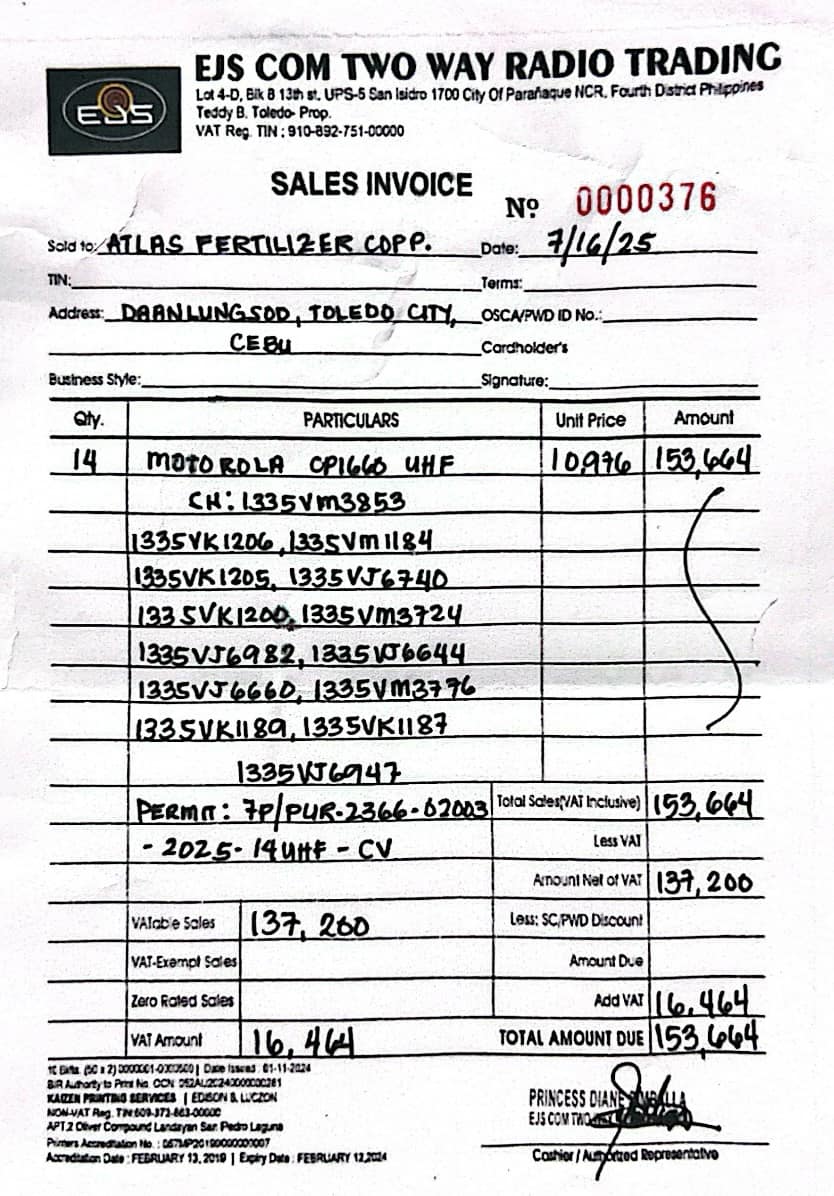 EJS COM TWO WAY RADIO TRADING
EJS
Lot 4-D, Blk 8 13th st. UPS-5 San Isidro 1700 City Of Parañaque NCR, Fourth District Philippines
Teddy B. Toledo- Prop.
VAT Reg. TIN : 910-892-751-00000
SALES INVOICE
Nº 0000376
Sold to: ATLAS FERTILIZER COPP. Date: 7/16/25
TIN: Terms:
Address: DAANLUNGSOD, TOLEDO CITY, OSCA/PWD ID No.:
CEBU Cardholder's
Business Style: Signature:
Qty. PARTICULARS Unit Price Amount
14 MOTOROLA CP1660 UHF 10,976 153,664
CH: 1335VM3853
1335VK1206, 1335VM1184
1335VK1205, 1335VJ6740
1335VK1200, 1335VM3724
1335VJ6982, 1335VJ6644
1335VJ6660, 1335VM3776
1335VK1189, 1335VK1187
1335VJ6947
PERMIT: 7P/PUR-2366-02003 Total Sales(VAT Inclusive) 153,664
- 2025- 14UHF - CV Less VAT
Amount Net of VAT 137,200
VATable Sales 137,200 Less: SC/PWD Discount
VAT-Exempt Sales Amount Due
Zero Rated Sales Add VAT 16,464
VAT Amount 16,464 TOTAL AMOUNT DUE 153,664
10 Bklts. (50 x 2) 0000001-0000500 | Date Issued : 01-11-2024
BIR Authority to Print No. OCN
KAIZEN PRINTING SERVICES | EDISON S. LUCZON
NON-VAT Reg. TIN 609-373-863-00000
APT.2 Oliver Compound Landayan San Pedro Laguna
Printers Accreditation No. :
Accreditation Date : FEBRUARY 13, 2019 | Expiry Date : FEBRUARY 12, 2024
PRINCESS DIANE
EJS COM TWO
Cashier / Authorized Representative